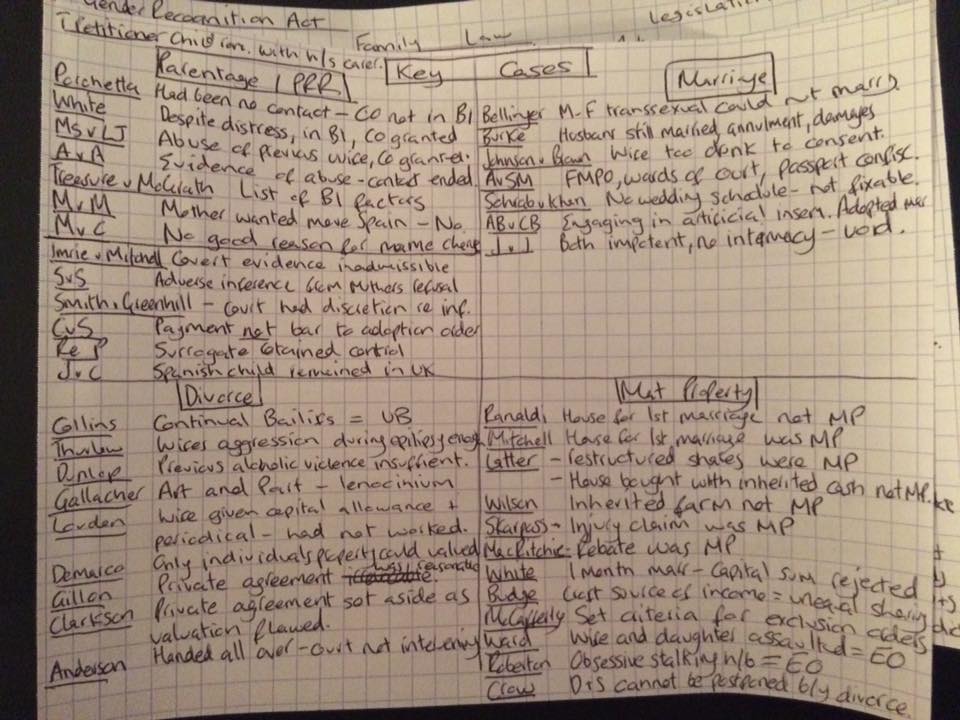 Gender Recognition Act
Petitioner child ion. with h/s carer.
Family Law
Legislati
Key Cases
Parentage / PRR
Porchetta Had been no contact - CO not in BI
White Despite distress, in BI, CO granted
MS v LJ Abuse of previous wice, CO granted.
A v A Evidence of abuse - contact ended
Treasure v McGrath List of BI factors
M v M Mother wanted move Spain - No.
M v C No good reason for name change
Imrie v Mitchell Covert evidence inadmissible
S v S Adverse inference from Mothers refusal
Smith v Greenhill - court had discretion re inf.
C v S Payment not bar to adoption order
Re P Surrogate retained control
J v C Spanish child remained in UK
Marriage
Bellinger M-F transsexual could not marry.
Burke Husband still married, annulment, damages
Johnson v Brown Wife too drunk to consent.
A v SM FMPO, wards of court, passport confisc.
Sohrab v Khan No wedding schedule - not fixable.
AB v CB Engaging in artificial insem. Adopted mar
J v J Both impotent, no intemacy - void.
Divorce
Collins Continual Bailiffs = UB
Thurlow Wifes aggression during epilipsy enough
Dunlop Previous alcoholic violence insufficient.
Gallacher Art and Part - lenocinium
Louden Wife given capital allowance +
periodical - had not worked.
Demarco Only individuals property could valued
Gillon Private agreement was reasonable
Clarkson Private agreement set aside as
valuation flawed.
Anderson Handed all over - court not intervening
Mat Property
Ranaldi House for 1st marriage not MP
Mitchell House for 1st marriage was MP
Latter - restructured shares were MP
- House bought with inherited cash not MP
Wilson Inherited farm not MP
Skarpass - Injury claim was MP
MacRitchie - Rebate was MP
White 1 month marr - Capital sum rejected
Budge Last source of income = unequal sharing
McCafferty Set criteria for exclusion orders
Ward Wife and daughter assaulted = EO
Roberton Obsessive stalking h/b = EO
Crow D+S cannot be postponed b/y divorce